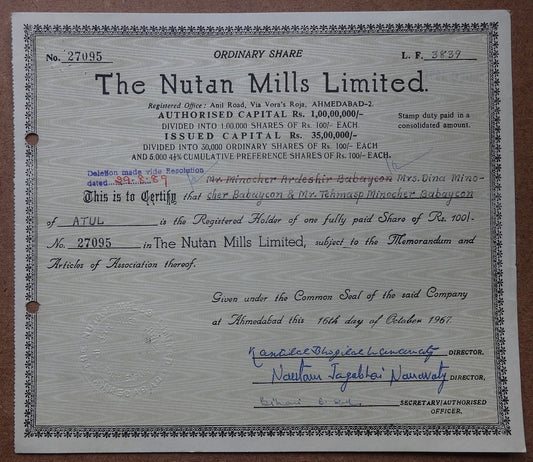 No. 27095 ORDINARY SHARE L. F. 3839
The Nutan Mills Limited.
Registered Office: Anil Road, Via Vora's Roja, AHMEDABAD-2.
AUTHORISED CAPITAL Rs. 1,00,00,000/-
DIVIDED INTO 1,00,000 SHARES OF Rs. 100/- EACH
ISSUED CAPITAL Rs. 35,00,000/-
DIVIDED INTO 30,000 ORDINARY SHARES OF Rs. 100/- EACH
AND 5,000 4½% CUMULATIVE PREFERENCE SHARES OF Rs. 100/- EACH.
Stamp duty paid in a
consolidated amount.
Deletion made vide Resolution
dated 29.8.89
Mr. Minocher Ardeshir Babaycon Mrs. Dina Mino-
This is to Certify that cher Babaycon & Mr. Tehmasp Minocher Babaycon
of ATUL is the Registered Holder of one fully paid Share of Rs. 100/-
No. 27095 in The Nutan Mills Limited, subject to the Memorandum and
Articles of Association thereof.
Given under the Common Seal of the said Company
at Ahmedabad this 16th day of October 1967.
DIRECTOR.
DIRECTOR.
SECRETARY/AUTHORISED
OFFICER.